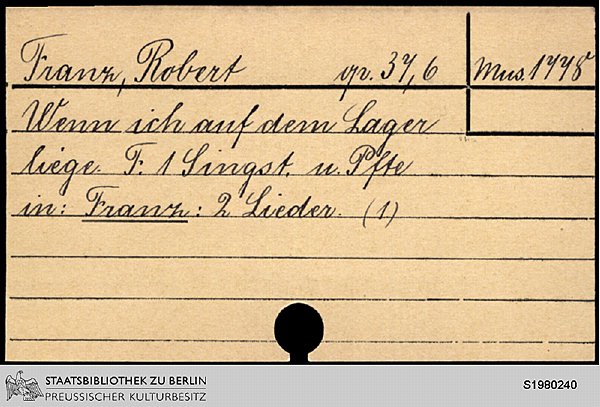 Franz, Robert op. 37,6 Mus. 1778
Wenn ich auf dem Lager
liege. F. 1 Singst. u. Pfte
in: Franz: 2 Lieder. (1)
STAATSBIBLIOTHEK ZU BERLIN
PREUSSISCHER KULTURBESITZ
S1980240